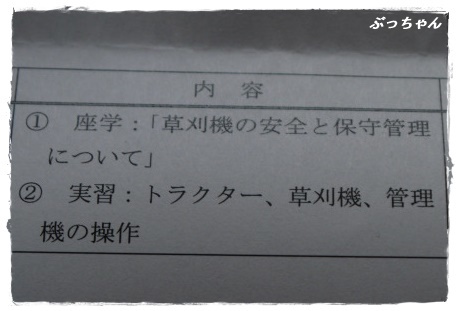 ぶっちゃん
内 容
① 座学:「草刈機の安全と保守管理
について」
② 実習:トラクター、草刈機、管理
機の操作